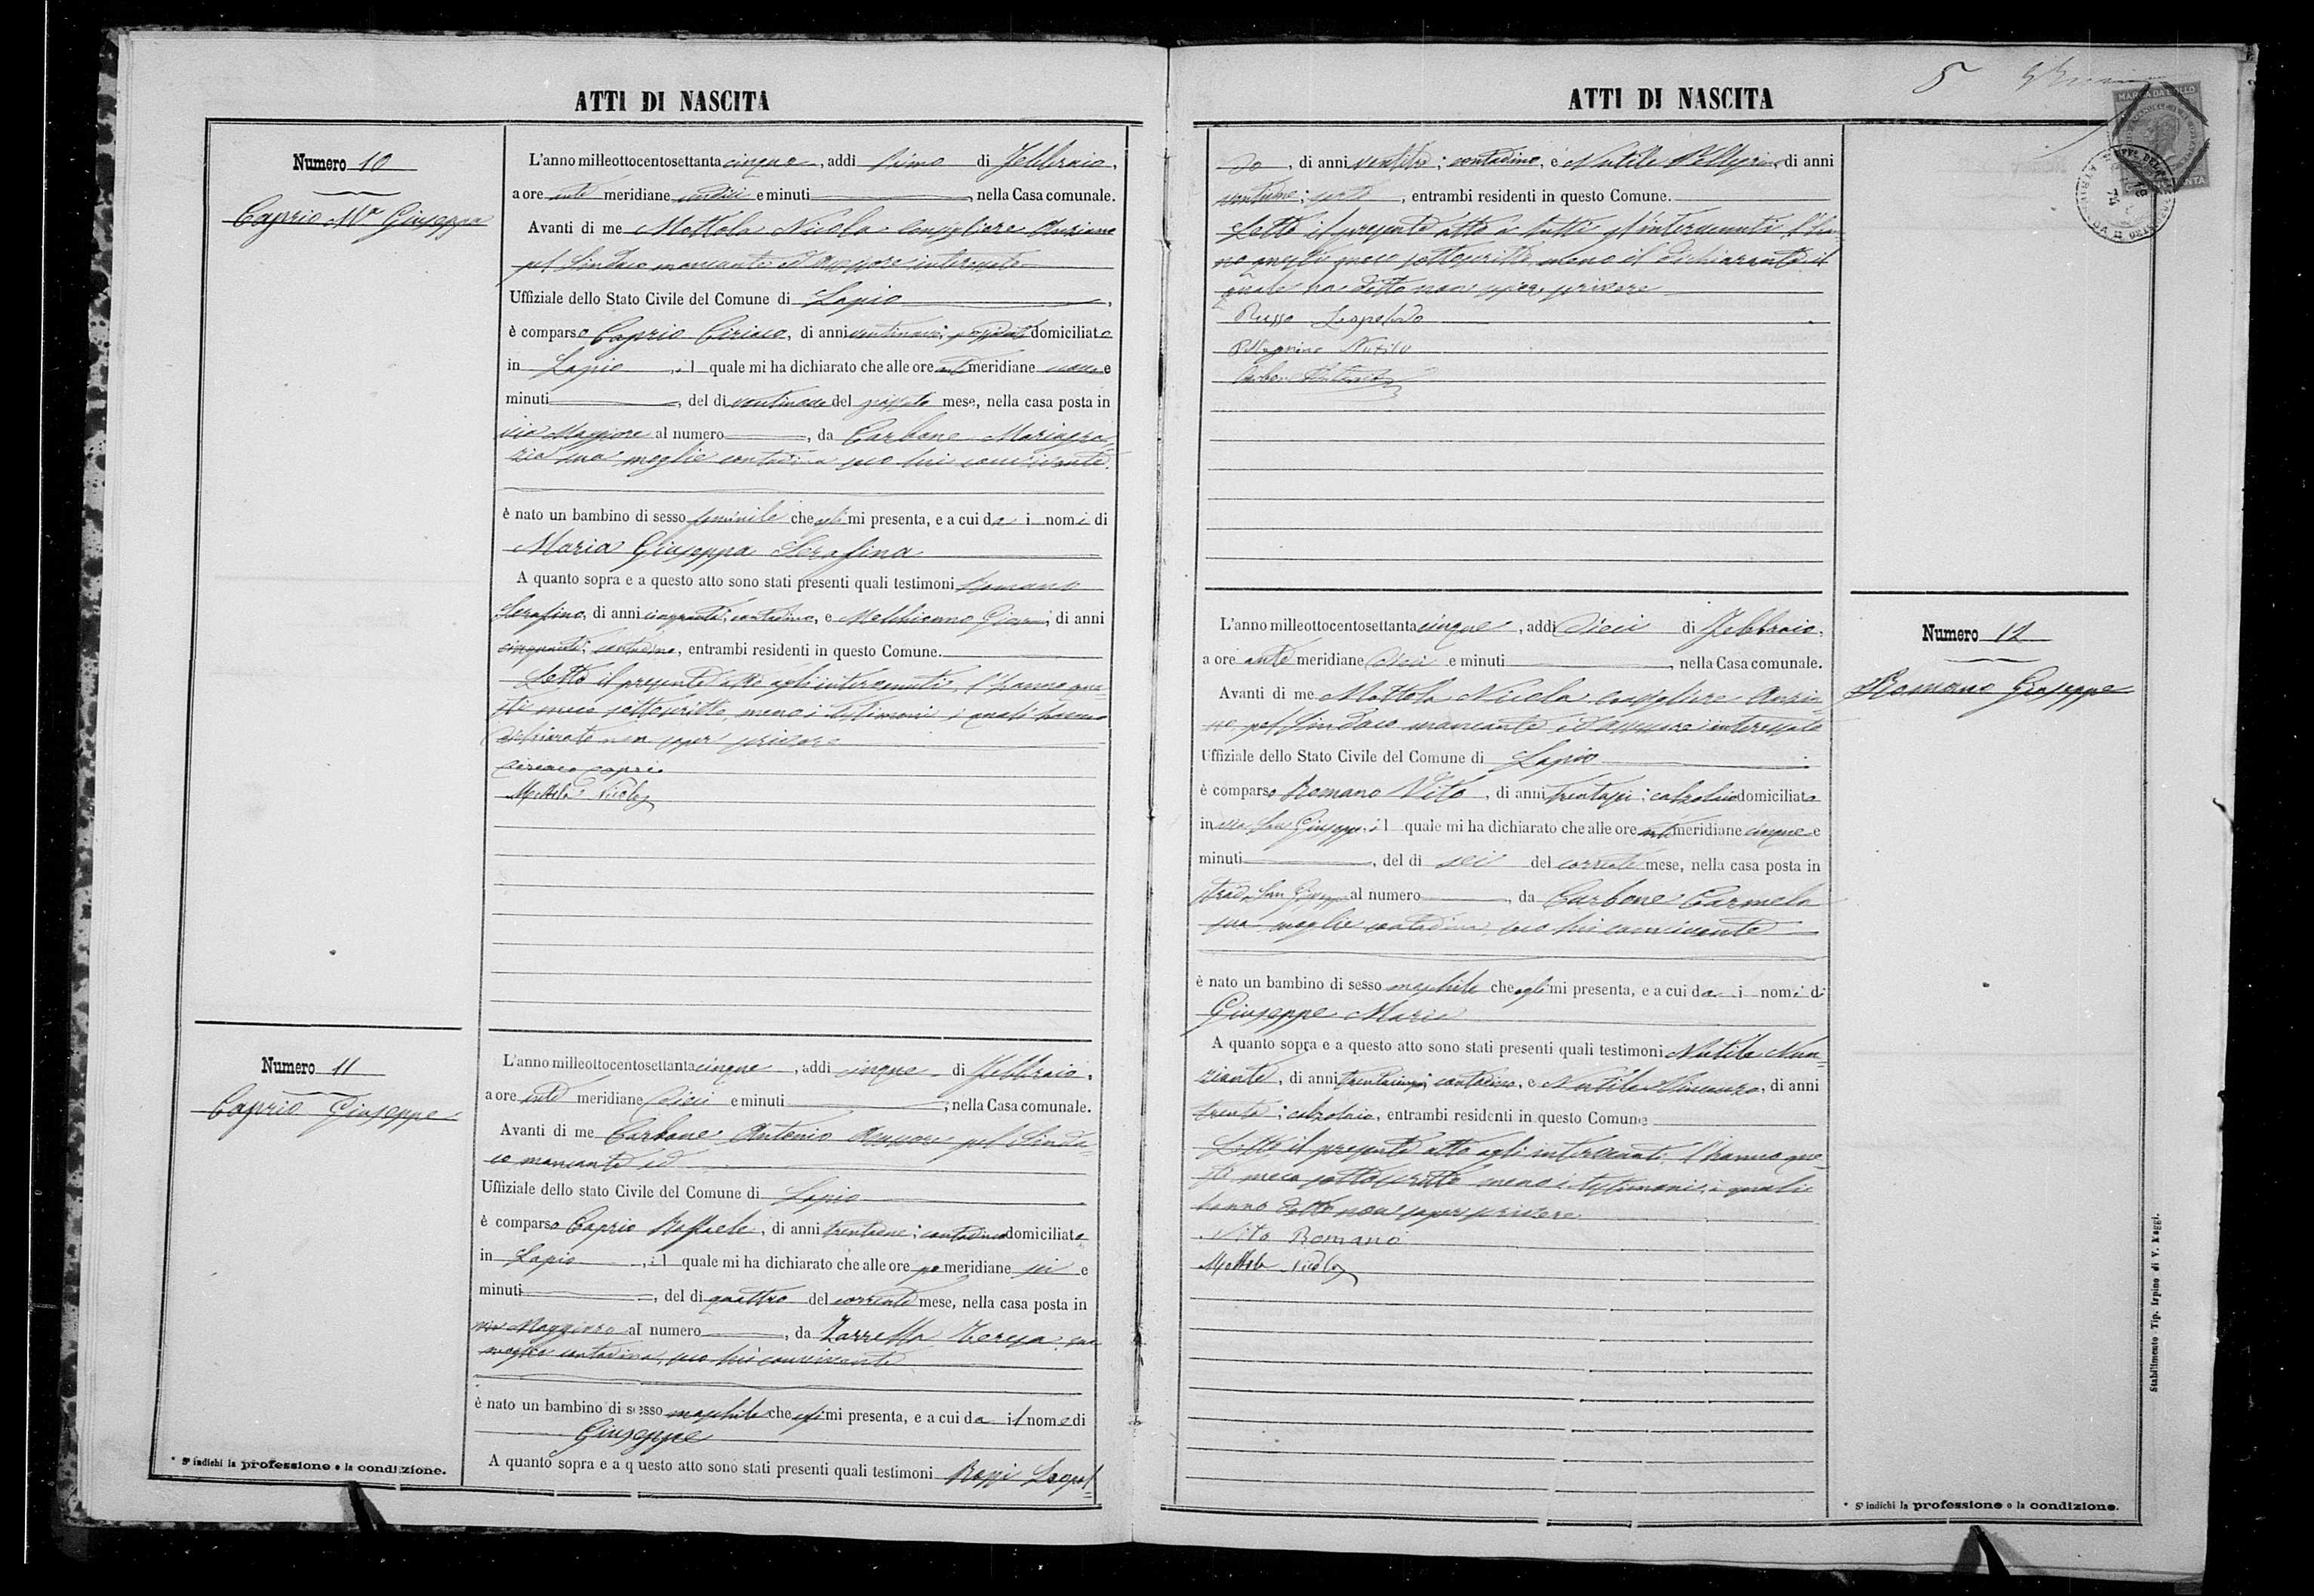 ATTI DI NASCITA
Numero 10
Caprio Mª Giuseppa
L'anno milleottocentosettantacinque, addi primo di Febbraio,
a ore anti meridiane undici e minuti, nella Casa comunale.
Avanti di me Mottola Nicola Consigliere Anziano
pel Sindaco mancante ed Assessore interessato
Uffiziale dello Stato Civile del Comune di Lapio,
è comparso Caprio Ciriaco, di anni ventinove; domiciliato
in Lapio, il quale mi ha dichiarato che alle ore ant meridiane nove e
minuti, del dì ventinove del passato mese, nella casa posta in
via Maggiore al numero, da Carbone Mariagra-
zia sua moglie contadina seco lui convivente.
è nato un bambino di sesso feminile che egli mi presenta, e a cui da i nomi di
Maria Giuseppa Serafina
A quanto sopra e a questo atto sono stati presenti quali testimoni Romano
Serafino, di anni cinquanta; contadino, e Melchionno, di anni
cinquanta; contadino, entrambi residenti in questo Comune.
Letto il presente atto agli intervenuti, l'hanno que-
sti meco sottoscritto, meno i testimoni i quali hanno
dichiarato non saper scrivere
Ciriaco Caprio
Mottola Nicola
Numero 11
Caprio Giuseppe
L'anno milleottocentosettantacinque, addi cinque di Febbraio,
a ore anti meridiane dieci e minuti, nella Casa comunale.
Avanti di me Carbone Antonio Assessore pel Sinda-
co mancante ed
Uffiziale dello stato Civile del Comune di Lapio
è comparso Caprio Raffaele, di anni trentadue; contadino domiciliato
in Lapio, il quale mi ha dichiarato che alle ore po meridiane sei e
minuti, del dì quattro del corrente mese, nella casa posta in
via Maggiore al numero, da Zarrella Teresa sua
moglie contadina, seco lui convivente
è nato un bambino di sesso maschile che egli mi presenta, e a cui da il nome di
Giuseppe
A quanto sopra e a questo atto sono stati presenti quali testimoni Russo Leopol-
* Si indichi la professione o la condizione.
ATTI DI NASCITA
5
MARCA DA BOLLO
do, di anni ventitre; contadino, e Nutile Pellegrino, di anni
ventidue; sarto, entrambi residenti in questo Comune.
Letto il presente atto a tutti gl'intervenuti, l'han-
no questi meco sottoscritto, meno il dichiarante il
quale ha detto non saper scrivere
Russo Leopoldo
Pellegrino Nutile
Carbone Antonio
Numero 12
Romano Giuseppe
L'anno milleottocentosettantacinque, addi dieci di Febbraio,
a ore anti meridiane dieci e minuti, nella Casa comunale.
Avanti di me Mottola Nicola Consigliere Anzia-
no pel Sindaco mancante ed Assessore interessato
Uffiziale dello Stato Civile del Comune di Lapio
è comparso Romano Vito, di anni trentasei; calzolaio domiciliato
in via San Giuseppe, il quale mi ha dichiarato che alle ore ant meridiane cinque e
minuti, del dì sei del corrente mese, nella casa posta in
strada San Giuseppe al numero, da Carbone Carmela
sua moglie contadina, seco lui convivente
è nato un bambino di sesso maschile che egli mi presenta, e a cui da i nomi di
Giuseppe Maria
A quanto sopra e a questo atto sono stati presenti quali testimoni Nutile Nun-
ziante, di anni trentacinque; contadino, e Nutile Vincenzo, di anni
trenta; calzolaio, entrambi residenti in questo Comune
Letto il presente atto agli intervenuti, l'hanno que-
sti meco sottoscritto meno i testimoni, i quali
hanno detto non saper scrivere.
Vito Romano
Mottola Nicola
* Si indichi la professione o la condizione.
Stabilimento Tip. Irpino di V. Maggi.